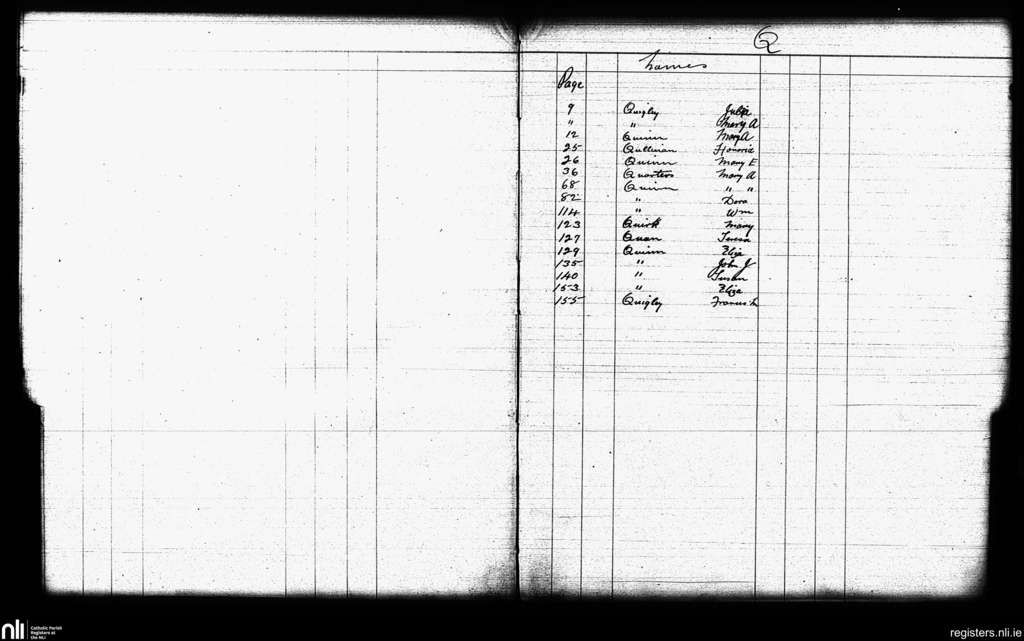 Q
Names
Page
9 Quigley Julia
" " Mary A
12 Quinn Mary A
25 Qullinan Honoria
26 Quinn Mary E
36 Quarters Mary A
68 Quinn " "
82 " Dora
114 " Wm
123 Quirk Mary
127 Quan Teresa
129 Quinn Eliza
135 " John J
140 " Susan
153 " Eliza
155 Quigley Francis
nli Catholic Parish
Registers at
the NLI
registers.nli.ie